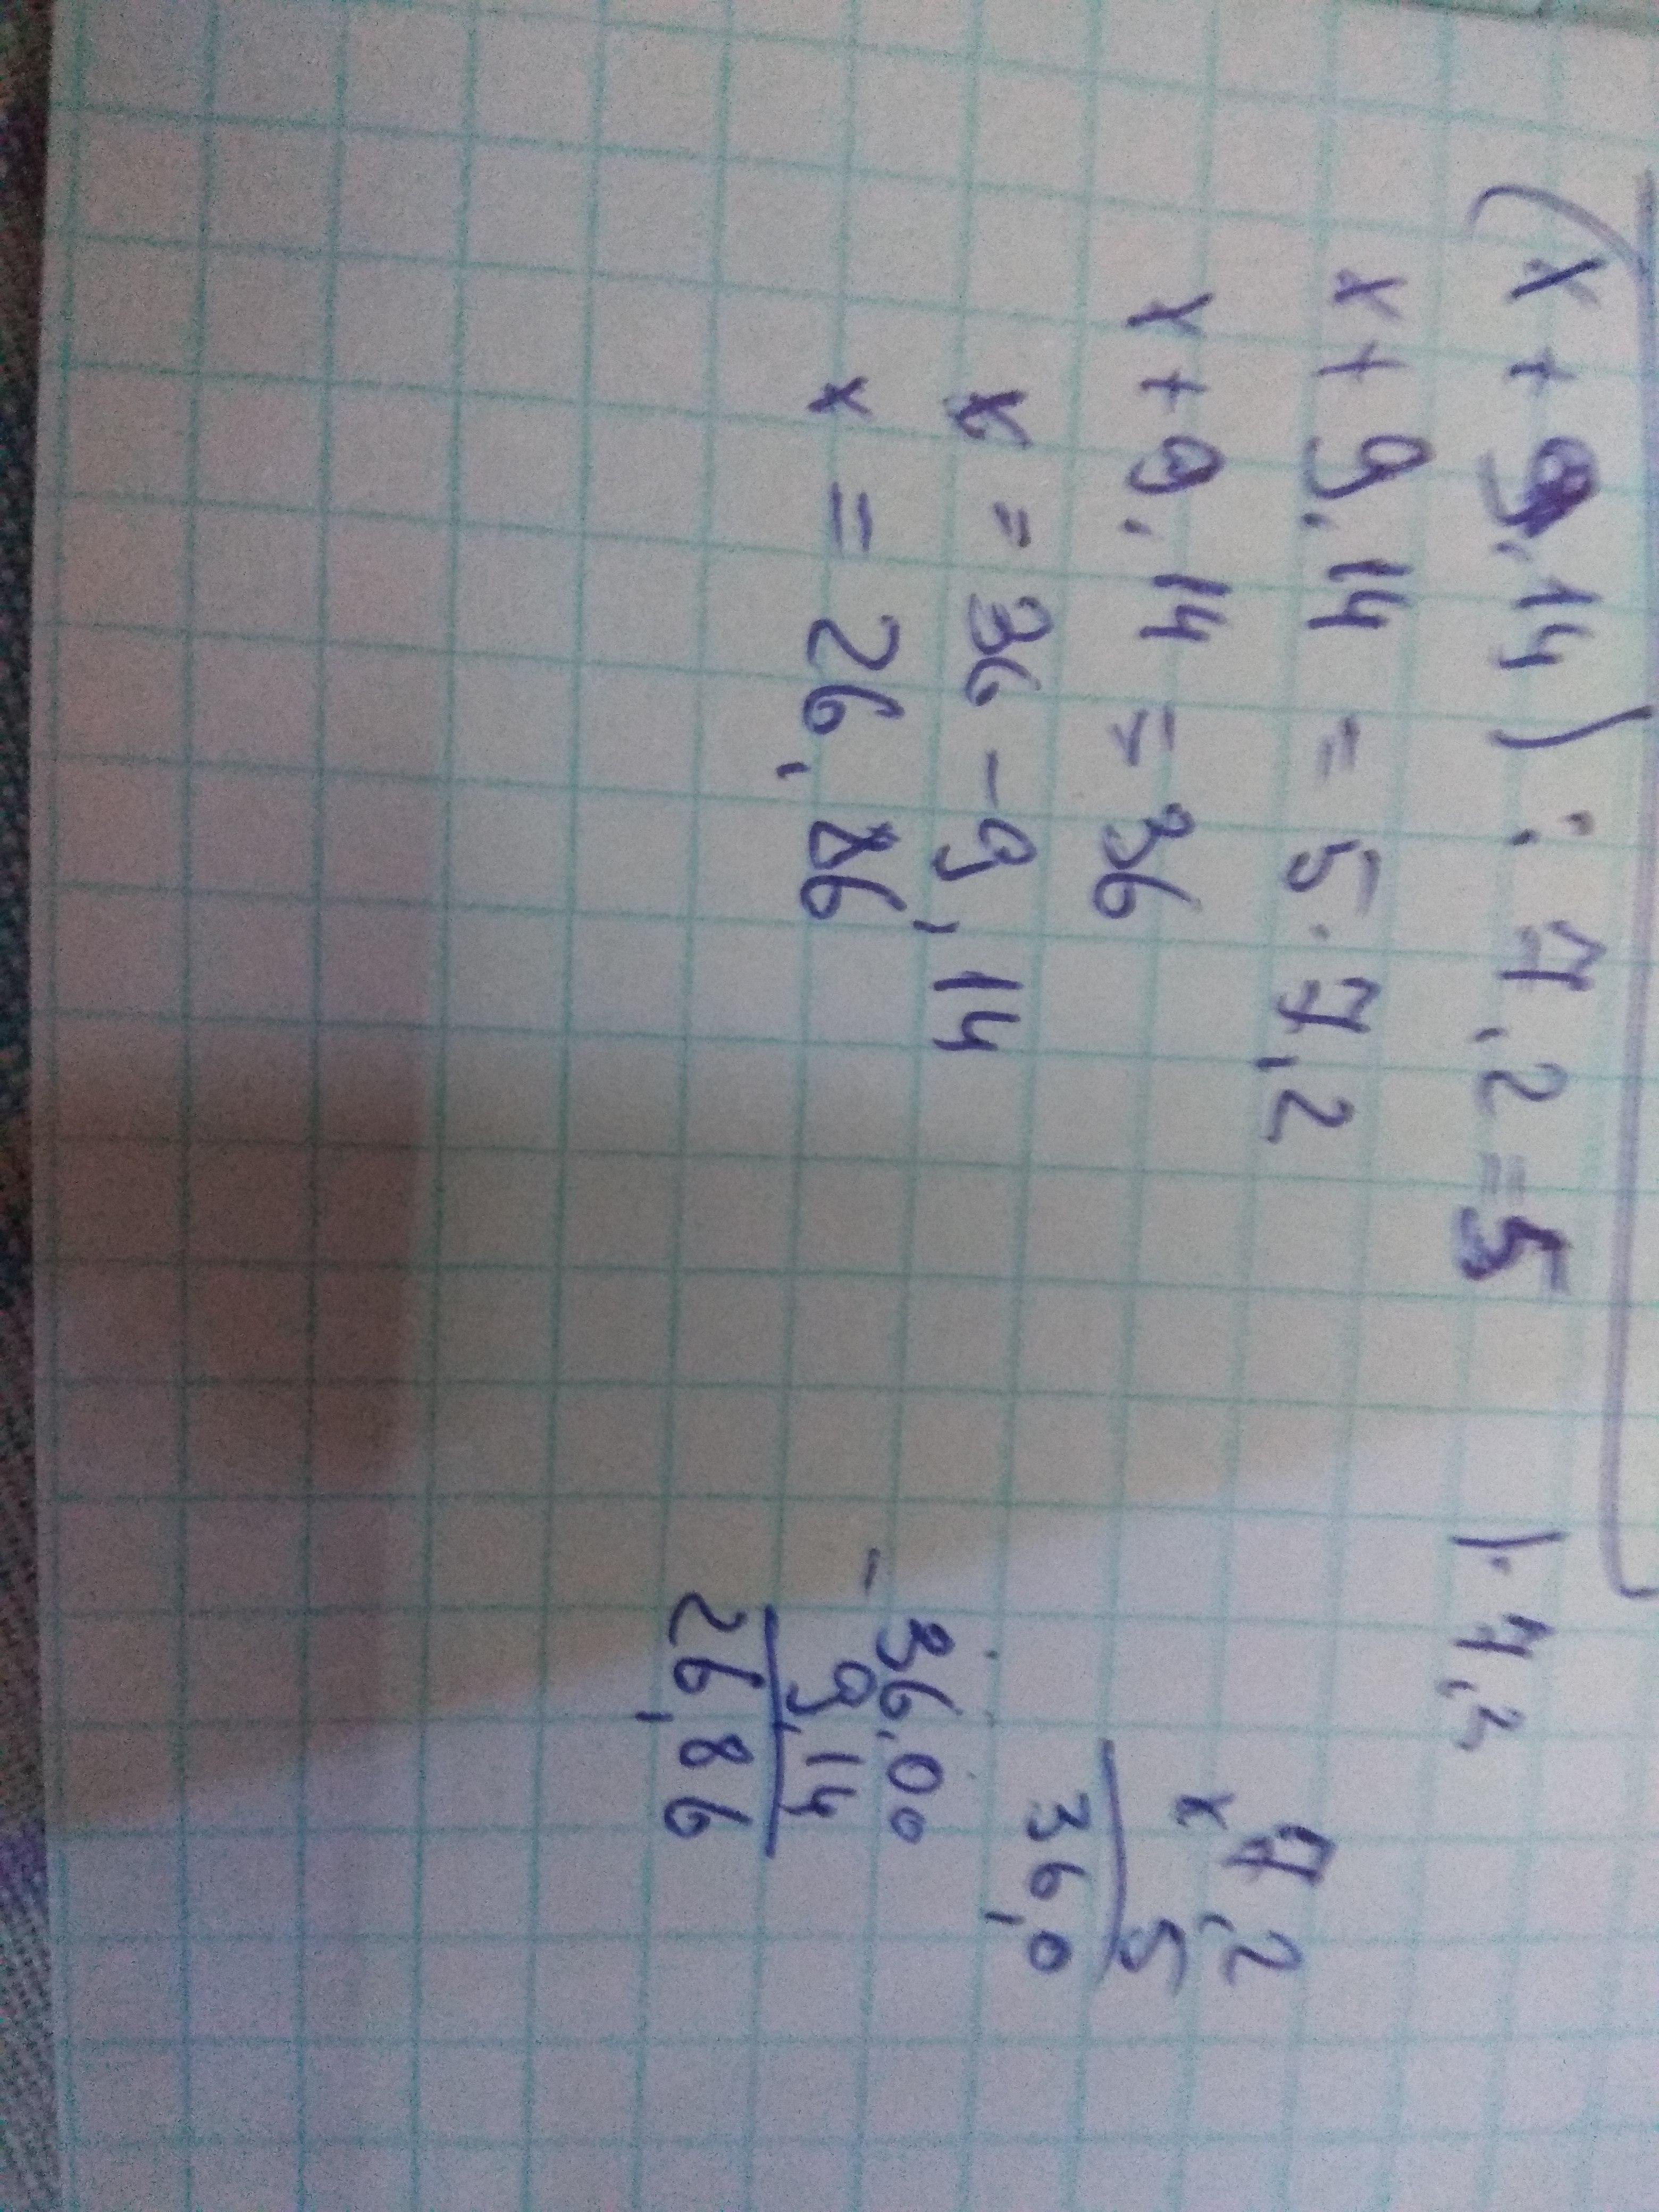 (x + 9,14) : 7,2 = 5 | · 7,2
x + 9,14 = 5 · 7,2
x + 9,14 = 36
x = 36 - 9,14
x = 26,86
7,2
x 5
36,0
- 36,00
9,14
26,86